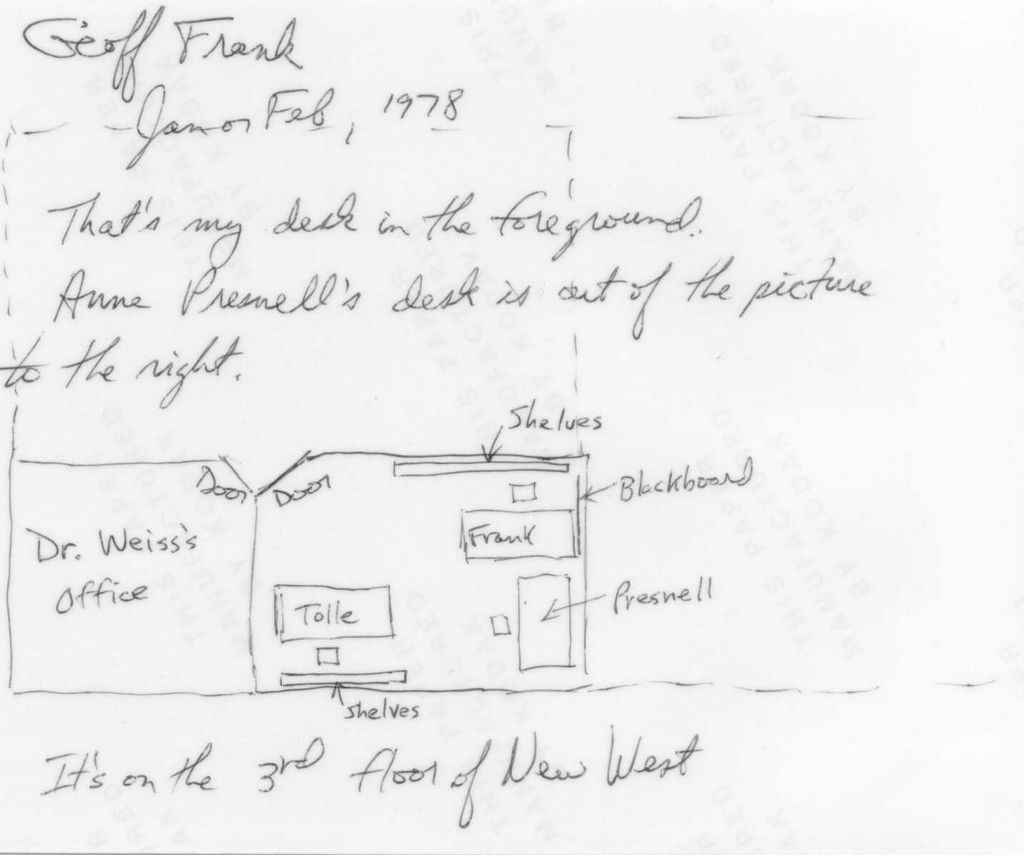 Geoff Frank
Jan or Feb, 1978
That's my desk in the foreground.
Anne Presnell's desk is out of the picture
to the right.
Shelves
Door Door
Blackboard
Dr. Weiss's
Office
Frank
Tolle
Presnell
Shelves
It's on the 3rd floor of New West
THIS PAPER
MANUFACTURED
BY KODAK